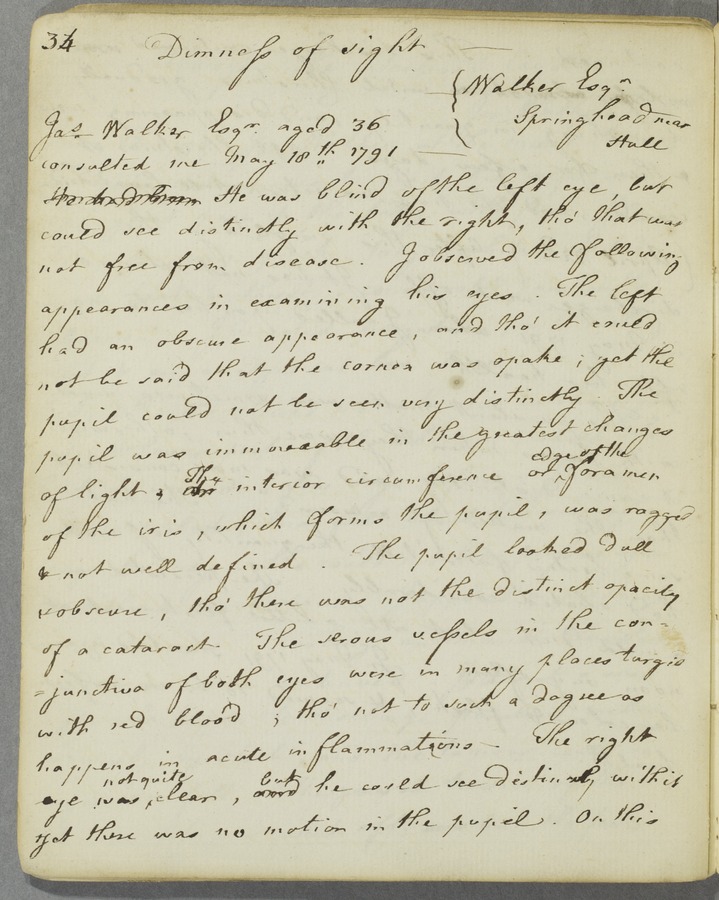 34
Dimness of sight —
{ Walker Esqr.
Springhead near
Hull
Jas. Walker Esqr. aged 36
consulted me May 18th 1791 —
He was blind of the left eye, but
could see distinctly with the right, tho' that was
not free from disease. I observed the following
appearances in examining his eyes. The left
had an obscure appearance, and tho' it could
not be said that the cornea was opake; yet the
pupil could not be seen very distinctly. The
pupil was immoveable in the greatest changes
of light, The interior circumference or edge of the foramen
of the iris, which forms the pupil, was ragged
& not well defined. The pupil looked dull
& obscure, tho' there was not the distinct opacity
of a cataract. The serous vessels in the con-
=junctiva of both eyes were in many places turgid
with red blood; tho' not to such a degree as
happens in acute inflammations — The right
eye was not quite clear, but he could see distinctly with it
yet there was no motion in the pupil. On this